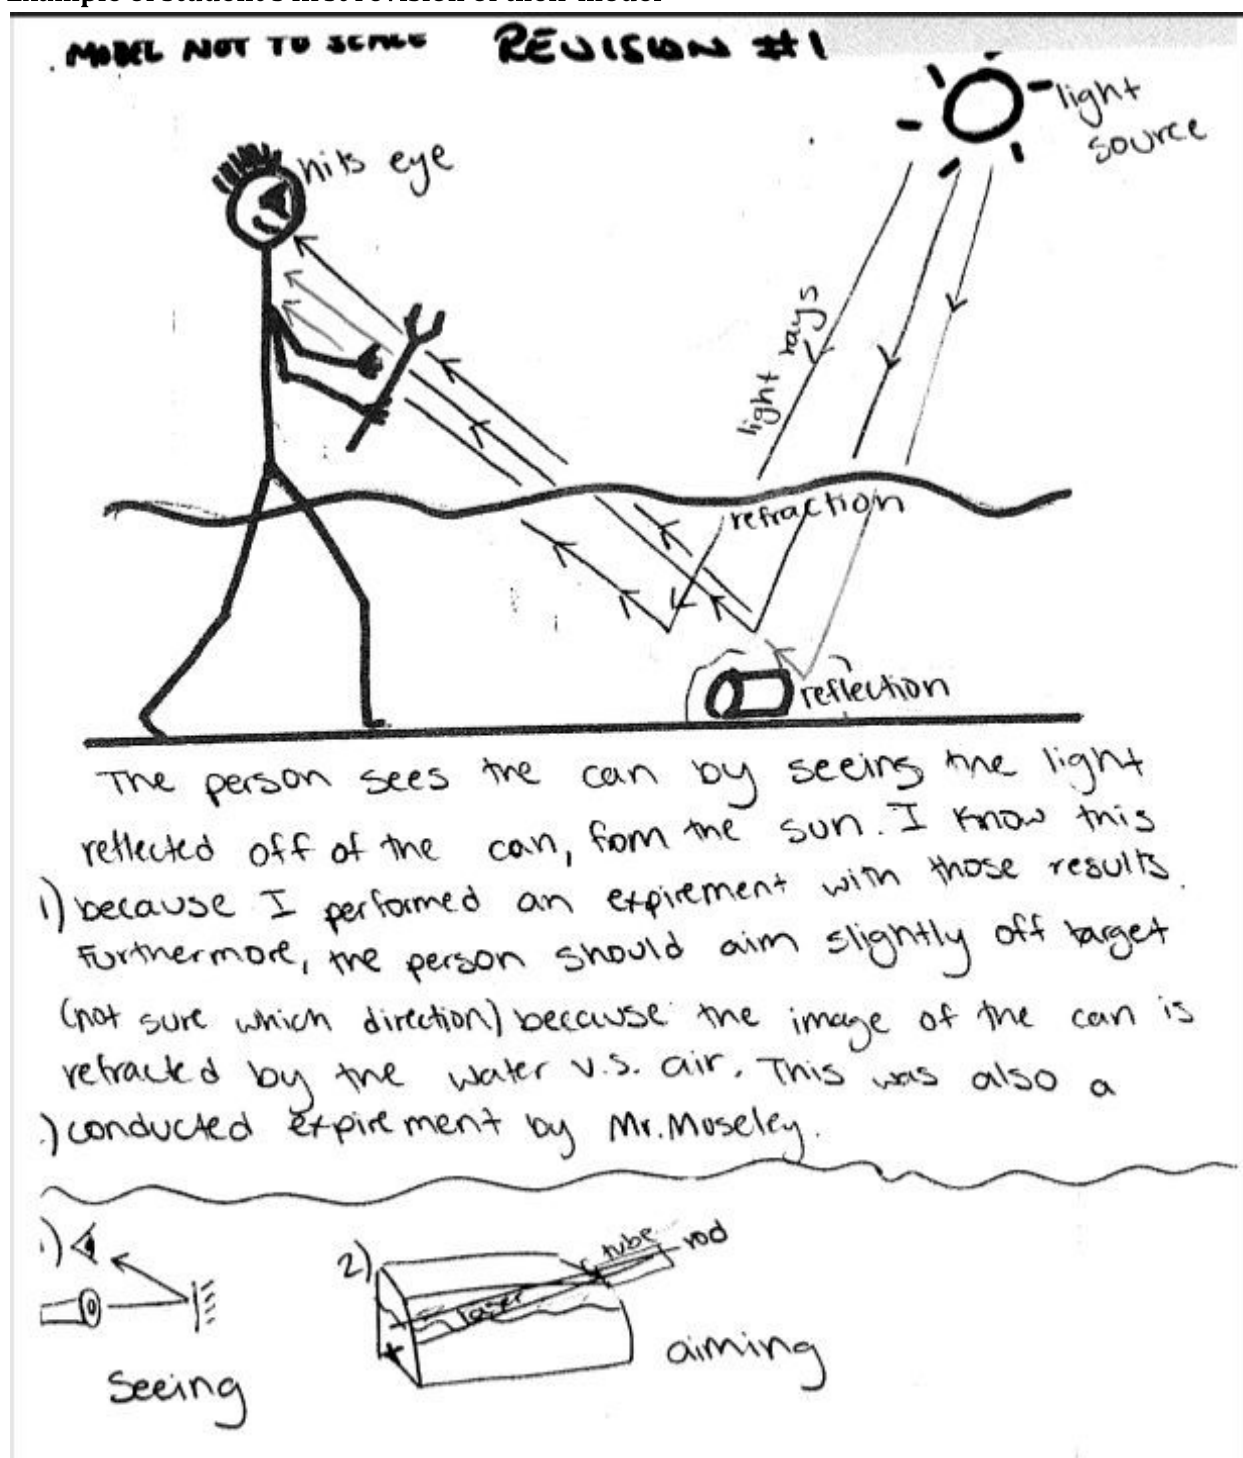 Example of student's first revision of their model
MODEL NOT TO SCALE REVISION #1
light
source
hits eye
light rays
refraction
reflection
The person sees the can by seeing the light
reflected off of the can, from the sun. I know this
1) because I performed an expirement with those results.
Furthermore, the person should aim slightly off target
(not sure which direction) because the image of the can is
refracted by the water v.s. air. This was also a
.) conducted expirement by Mr. Moseley.
.)
Seeing
2)
tube
rod
laser
aiming